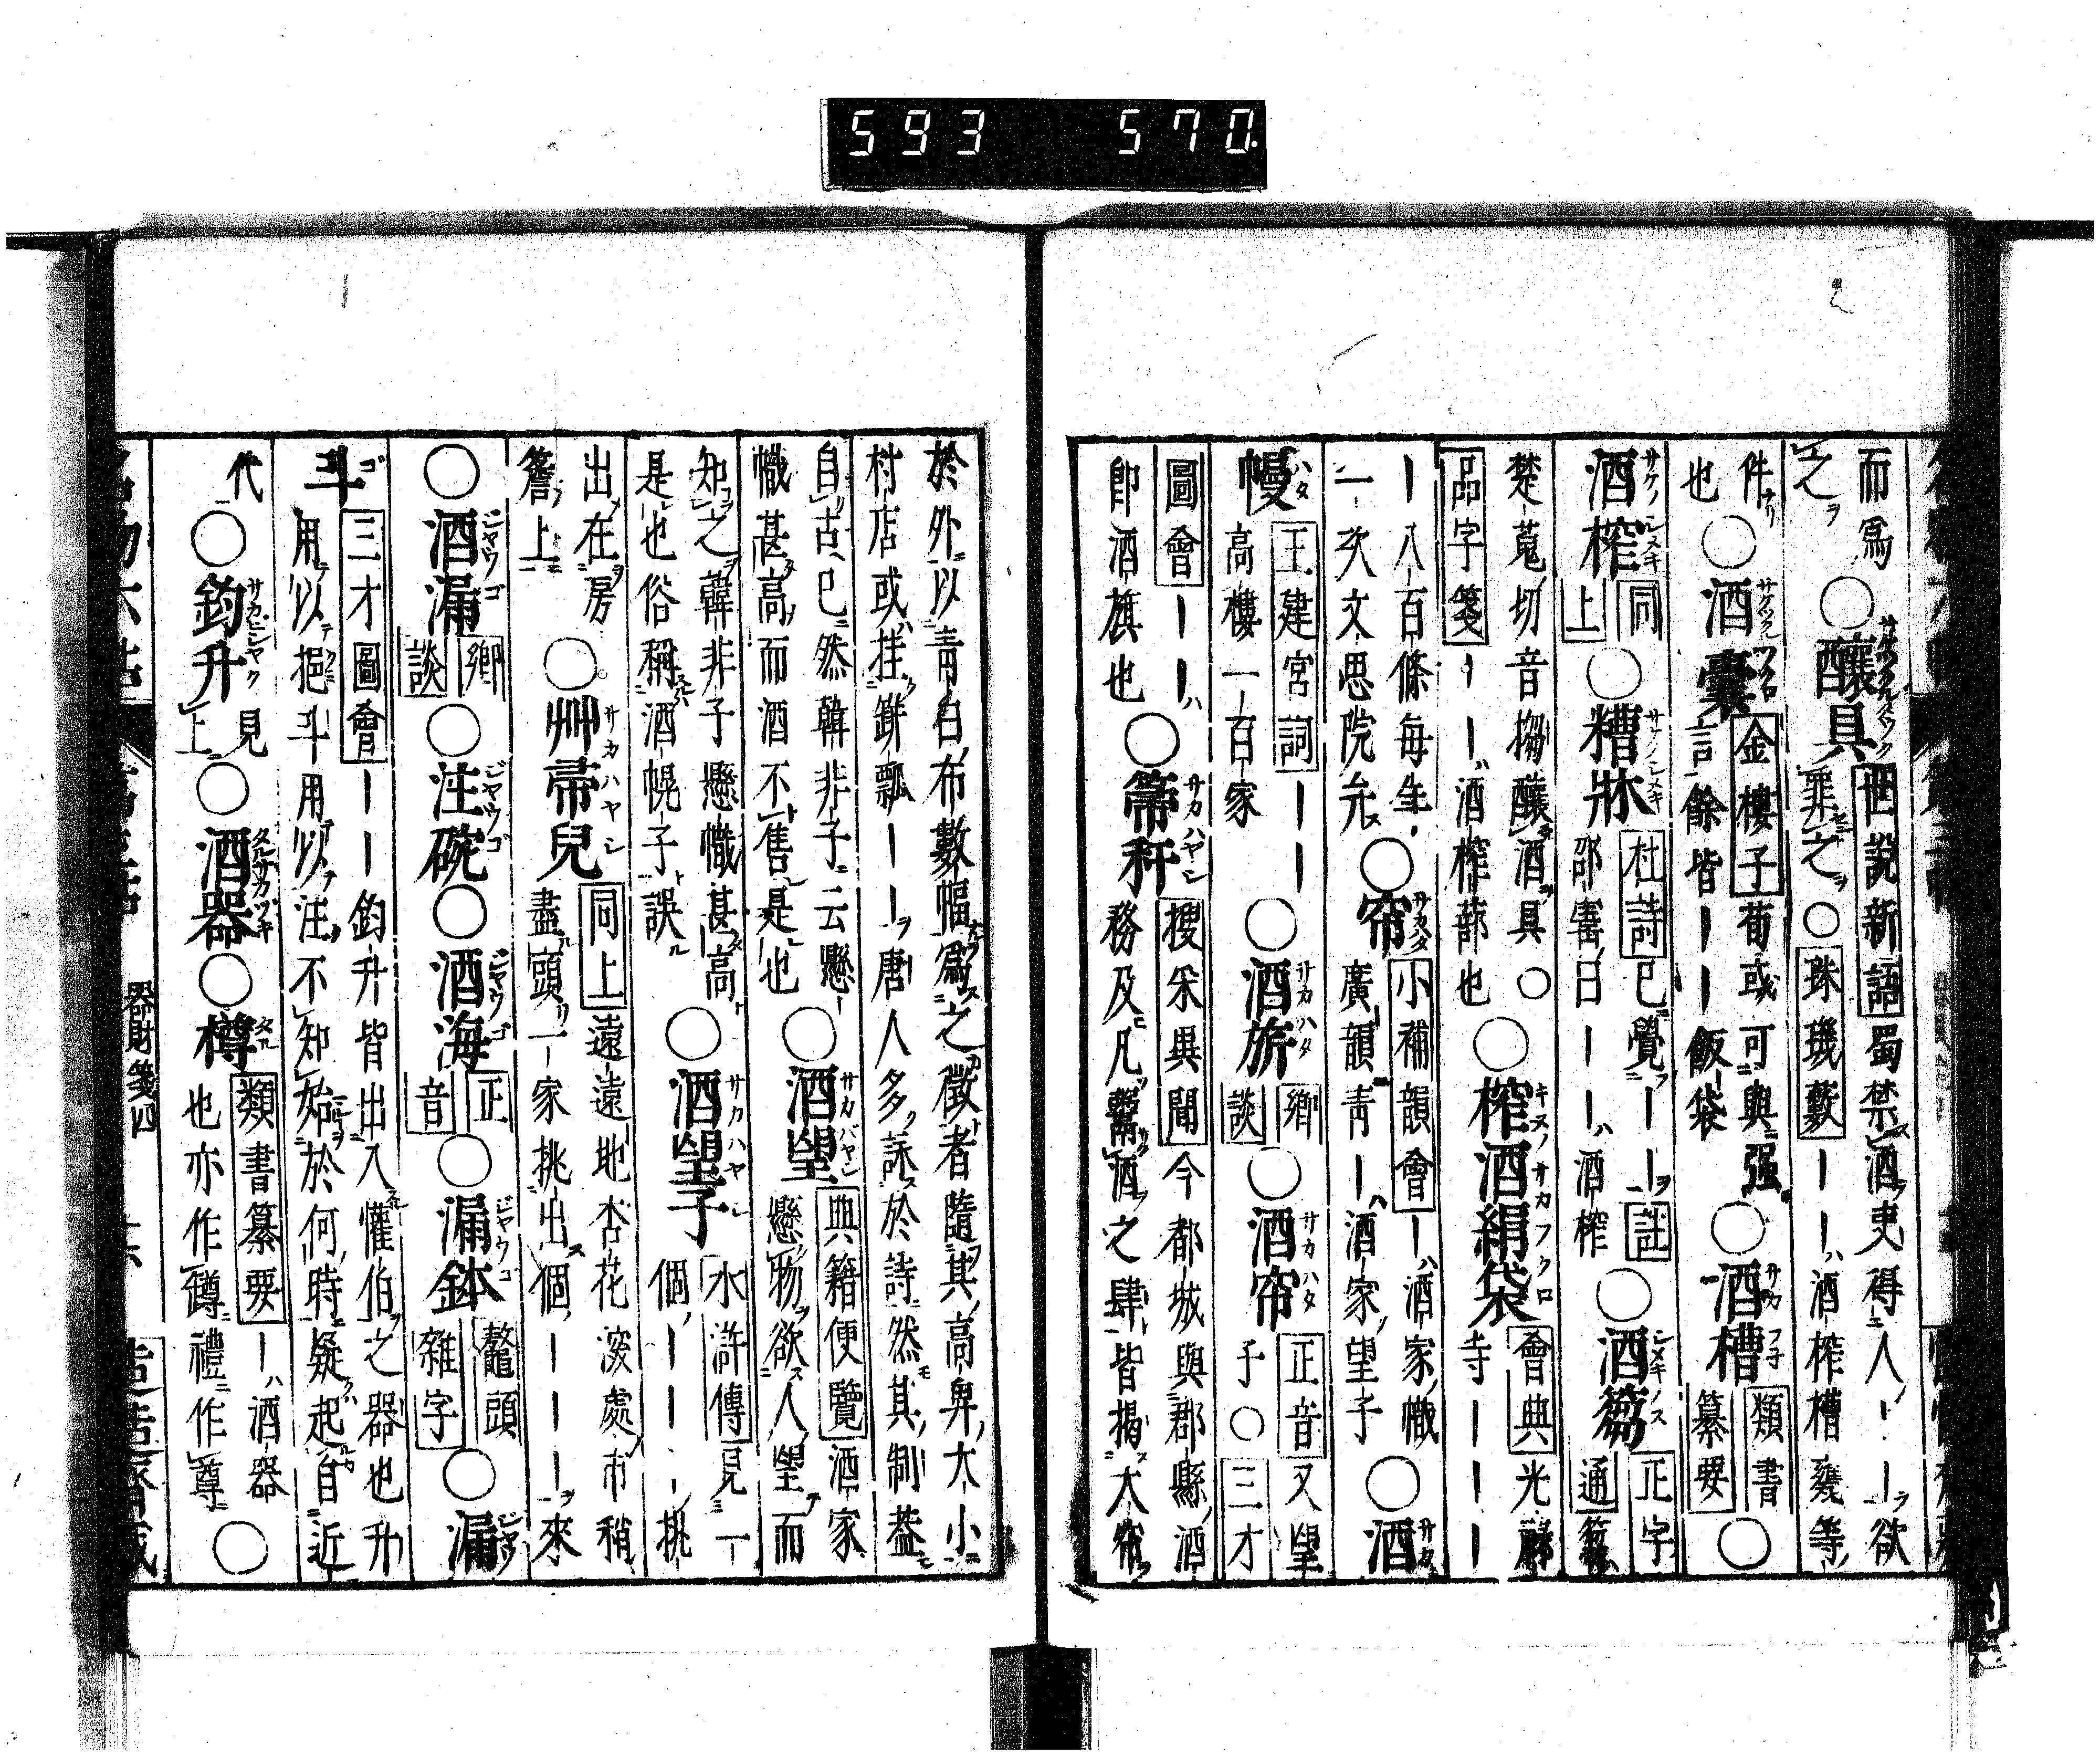 593 570
而爲 ○釀具 世說新語 蜀禁酒吏得人――欲
之 罪之 ○ 珠璣藪 ――ハ酒榨槽甕等
件 ○酒囊 金樓子 荀或可與强 ○酒槽 類書
也 言餘皆――飯袋 纂要 ○
酒榨 同上 ○糟牀 杜詩 已覺――註 ○酒篘 正字
邵寶曰――ハ酒榨 通
楚蒐切音搊釀酒具○ ○榨酒絹袋 會典 光祿
品字箋 ――ハ酒榨蔀也 寺――――
―八百條每年 ○帘 小補韻會 ―ハ酒家幟
一次文思院允 廣韻靑―ハ酒家望子 ○酒
幔 王建宮詞 ―― ○酒旂 鄉談 ○酒帘 正音 又望
高樓一百家 子○ 三才
圖會 ――ハ ○箒稈 搜采異聞 今都城與郡縣酒
即酒旗也 務及凡鬻酒之肆皆揭大帘
於外以靑白布數幅爲之徵者隨其高卑大小
村店或挂缾瓢――ヲ唐人多詠於詩然其制蓋
自古已然韓非子云懸― ○酒望 典籍便覽 酒家
幟甚高而酒不售是也 懸物欲人望而
知之韓非子懸幟甚高 ○酒望子 水滸傳 見一
是也俗稱酒幌子誤 個―――挑
出在房 ○艸帚兒 同上 遠遠地杏花深處市稍
簷上 盡頭一家挑出個―――來
○酒漏 鄉談 ○注碗 ○酒海 正音 ○漏鉢 鼇頭雜字 ○漏
斗 三才圖會 ―― 鈞升皆出入懽伯之器也升
用以挹斗用以注不知始於何時疑起自近
代 ○鈞升 見上 ○酒器 ○樽 類書纂要 ―ハ酒器
也亦作罇禮作尊 ○
器財箋四